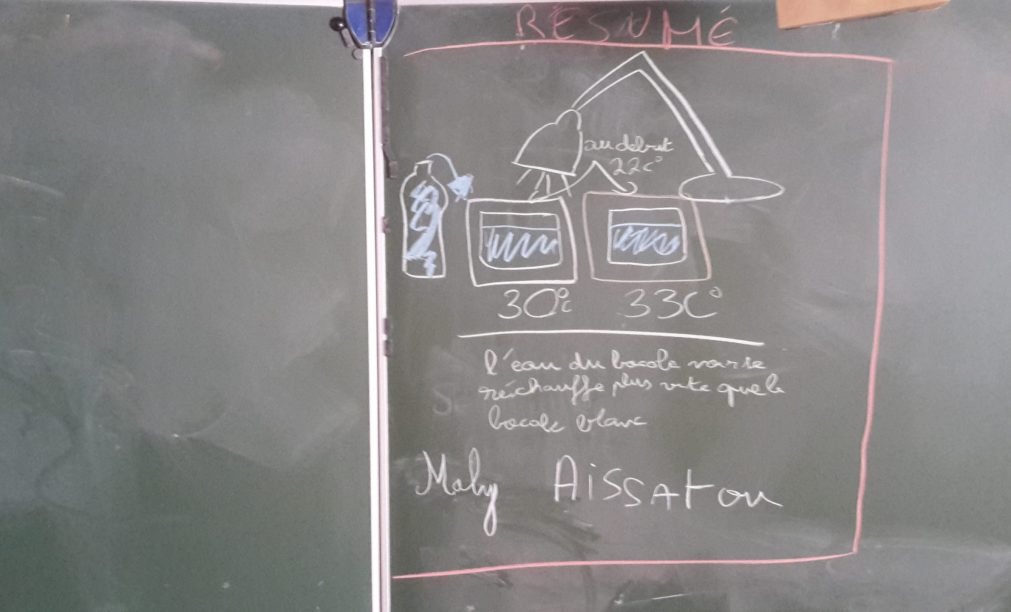 RÉSUMÉ
au début
22c°
30°c
33C°
l'eau du bocale noir se
réchauffe plus vite que le
bocale blanc
Maby Aissatou